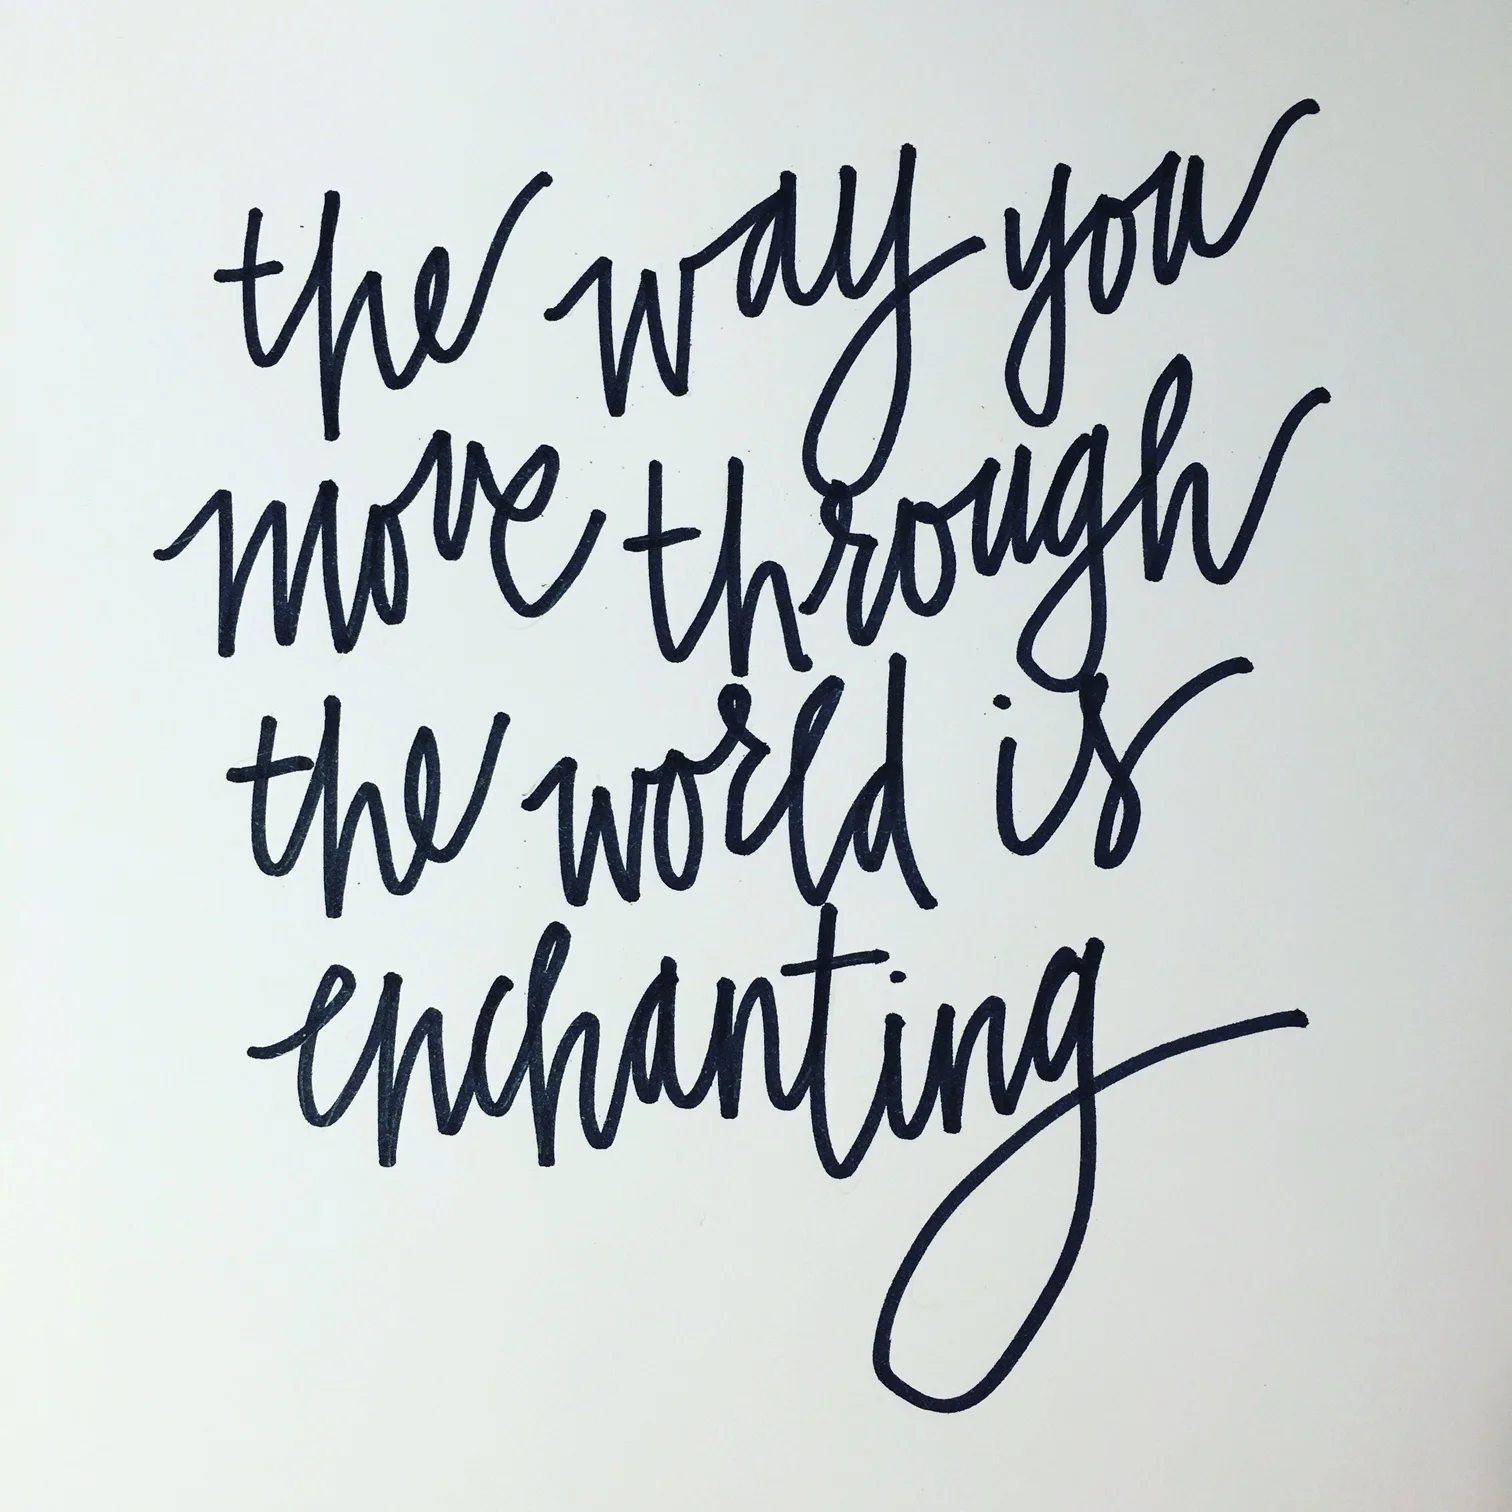 the way you
move through
the world is
enchanting